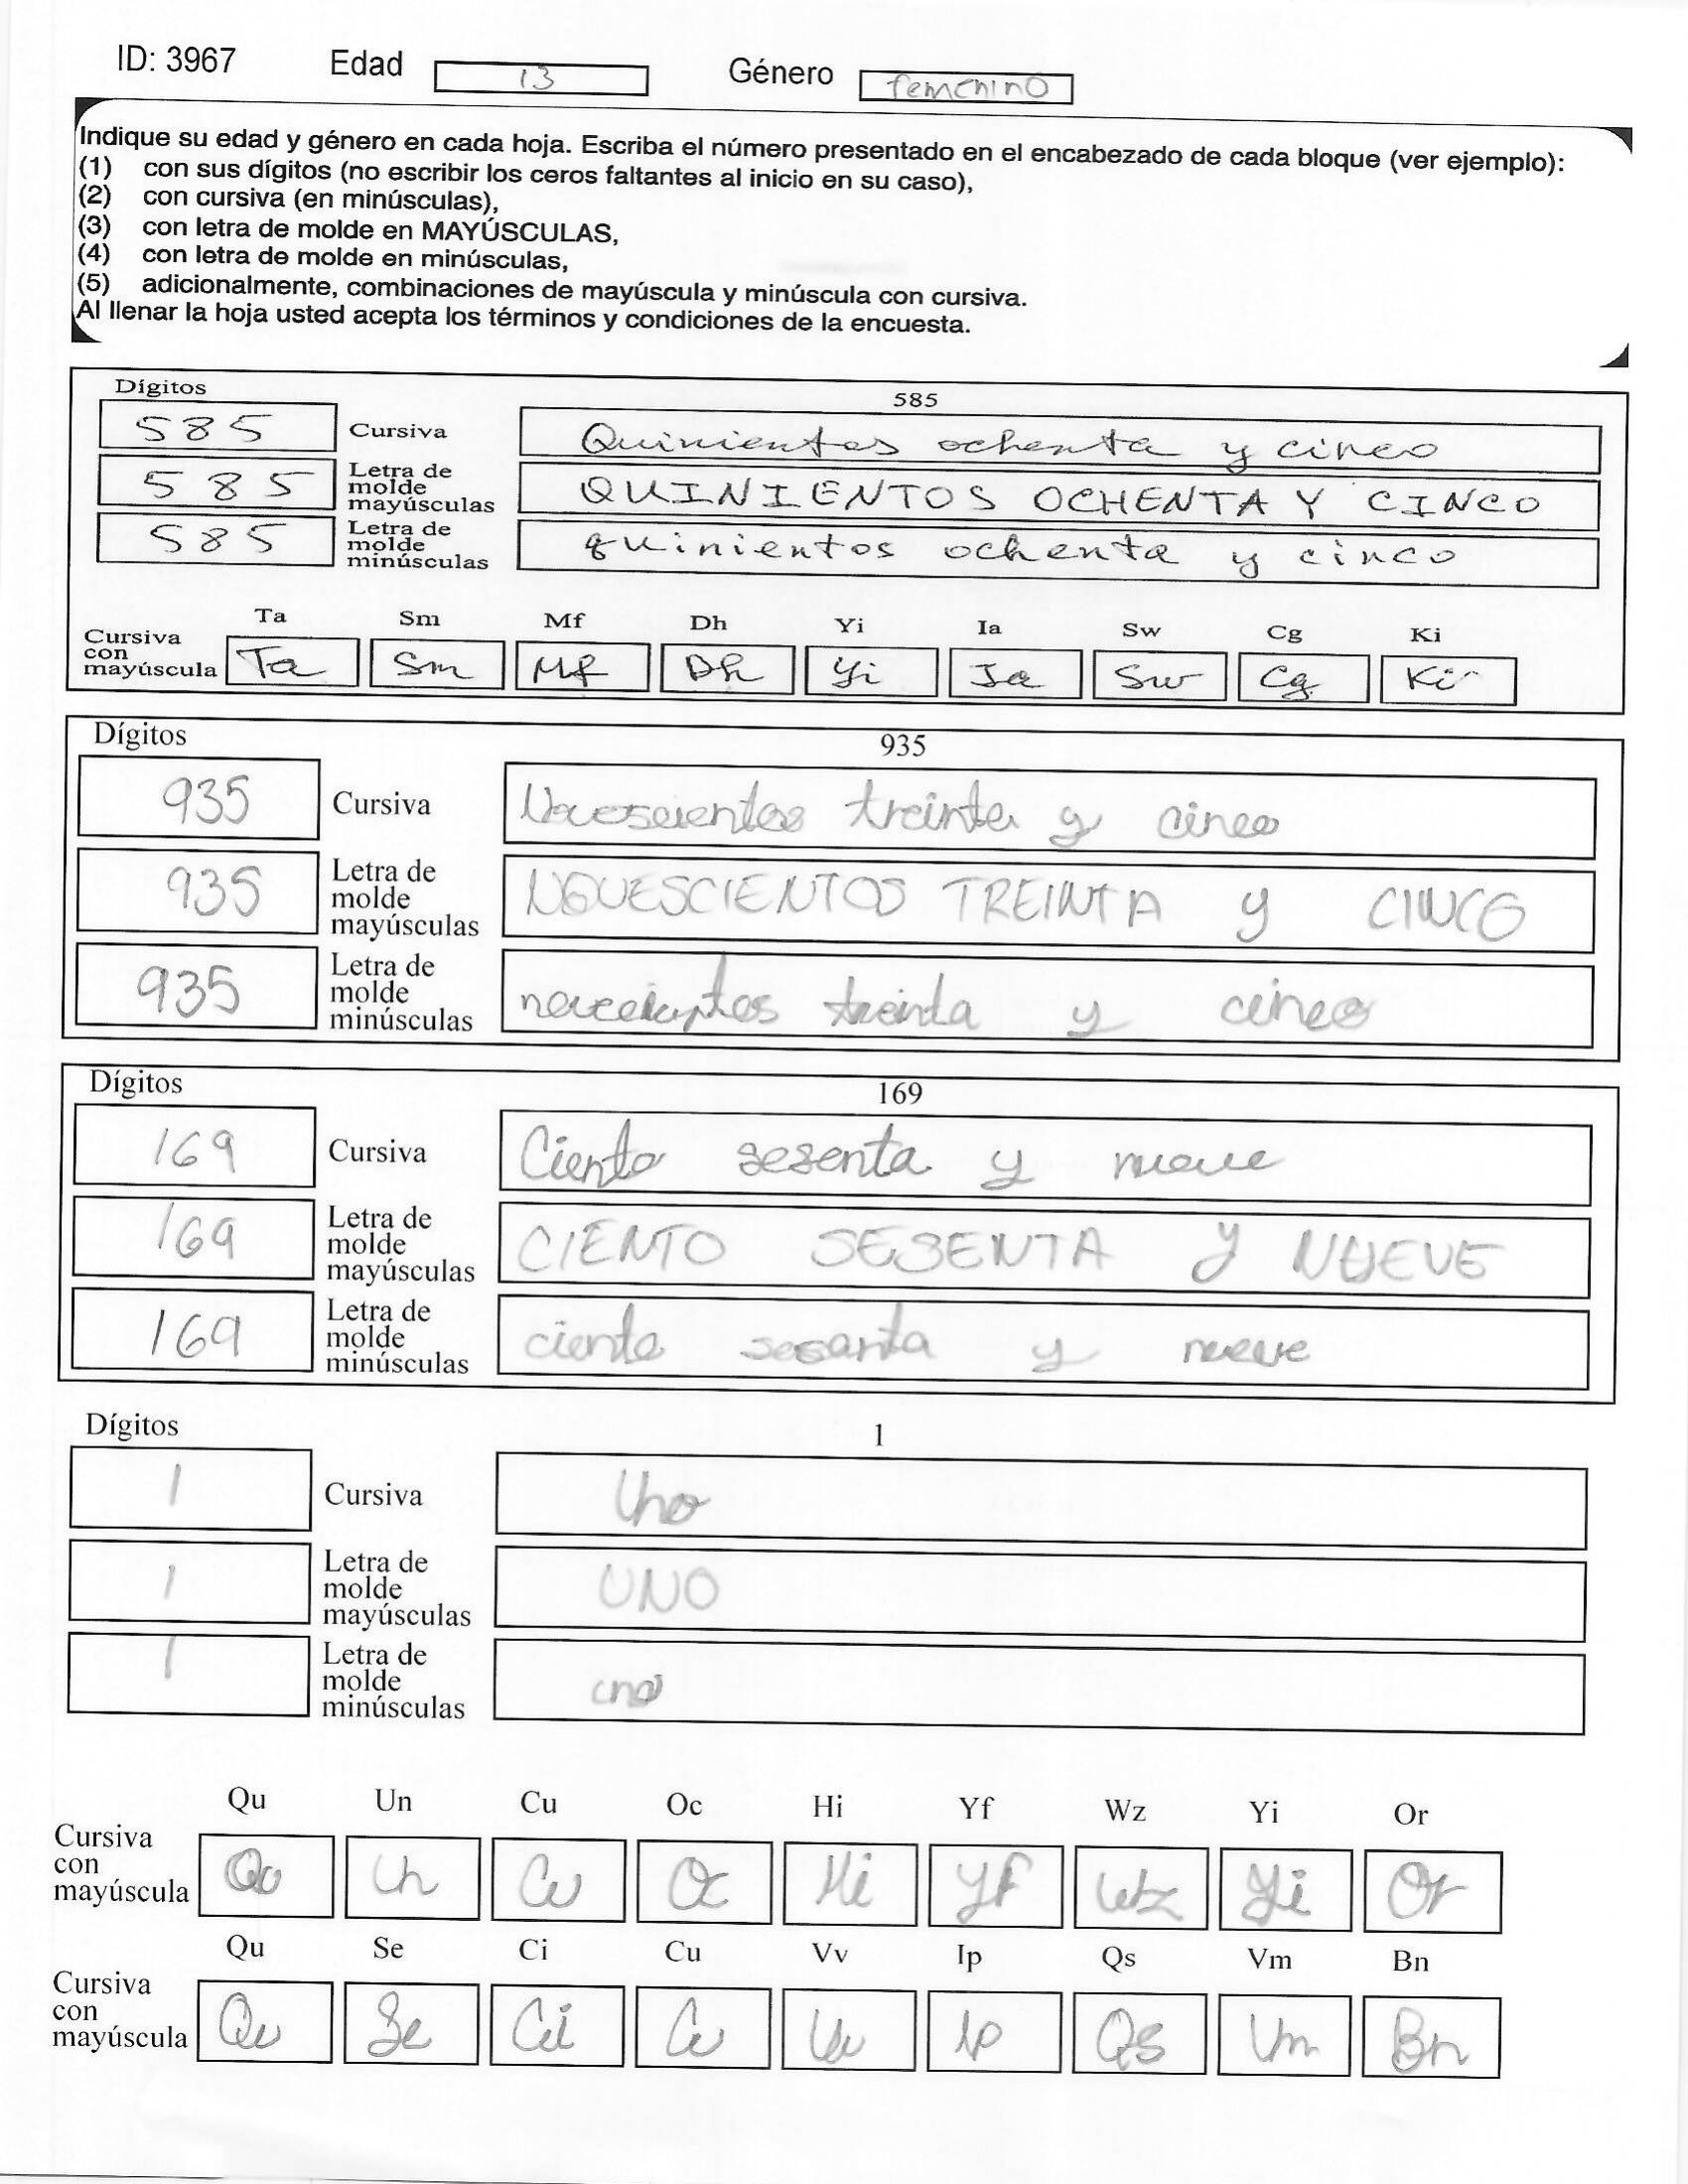 ID: 3967 Edad 13 Género femenino
Indique su edad y género en cada hoja. Escriba el número presentado en el encabezado de cada bloque (ver ejemplo):
(1) con sus dígitos (no escribir los ceros faltantes al inicio en su caso),
(2) con cursiva (en minúsculas),
(3) con letra de molde en MAYÚSCULAS,
(4) con letra de molde en minúsculas,
(5) adicionalmente, combinaciones de mayúscula y minúscula con cursiva.
Al llenar la hoja usted acepta los términos y condiciones de la encuesta.
Dígitos 585
585 Cursiva Quinientos ochenta y cinco
585 Letra de molde mayúsculas QUINIENTOS OCHENTA Y CINCO
585 Letra de molde minúsculas quinientos ochenta y cinco
Ta Sm Mf Dh Yi Ia Sw Cg Ki
Cursiva con mayúscula Ta Sm Mf Dh Yi Ia Sw Cg Ki
Dígitos 935
935 Cursiva treinta y cinco
935 Letra de molde mayúsculas NOVESCIENTOS TREINTA y CINCO
935 Letra de molde minúsculas treinta y cinco
Dígitos 169
169 Cursiva Ciento sesenta y nueve
169 Letra de molde mayúsculas CIENTO SESENTA y NUEVE
169 Letra de molde minúsculas ciento sesenta y nueve
Dígitos 1
1 Cursiva Uno
1 Letra de molde mayúsculas UNO
1 Letra de molde minúsculas uno
Qu Un Cu Oc Hi Yf Wz Yi Or
Cursiva con mayúscula Qu Un Cu Oc Hi Yf Wz Yi Or
Qu Se Ci Cu Vv Ip Qs Vm Bn
Cursiva con mayúscula Qu Se Ci Cu Vv Ip Qs Vm Bn